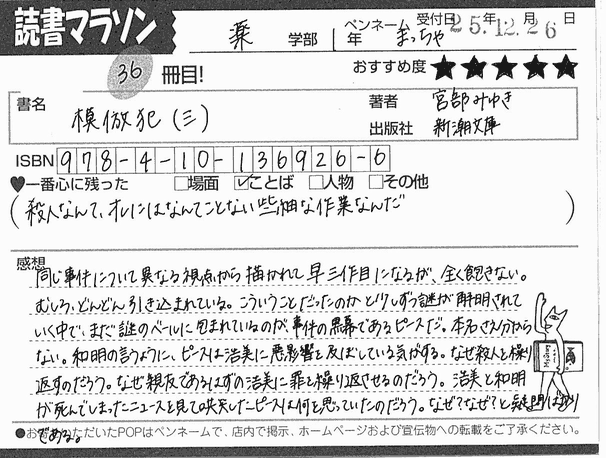 読書マラソン
薬 学部 1年 ペンネーム まっちゃ 受付日 25年12月26日
36 冊目! おすすめ度 ★★★★★
書名 模倣犯(三) 著者 宮部みゆき
出版社 新潮文庫
ISBN 978-4-10-136926-6
♥一番心に残った □場面 ☑ことば □人物 □その他
(殺人なんて、オレにはなんてことない些細な作業なんだ)
感想
同じ事件について異なる視点から描かれて早三作目になるが、全く飽きない。
むしろ、どんどん引き込まれている。こういうことだったのかと少しずつ謎が解明されて
いく中で、まだ謎のベールに包まれているのが、事件の黒幕であるピースだ。本名さえ分から
ない。和明の言うように、ピースは浩美に悪影響を及ぼしている気がする。なぜ殺人を繰り
返すのだろう。なぜ親友であるはずの浩美に罪を繰り返させるのだろう。浩美と和明
が死んでしまったニュースを見て失笑したピースは何を思っていたのだろう。なぜ?なぜ?と疑問ばかり
である。
●お書きいただいたPOPはペンネームで、店内で掲示、ホームページおよび宣伝物への転載をご了承ください。